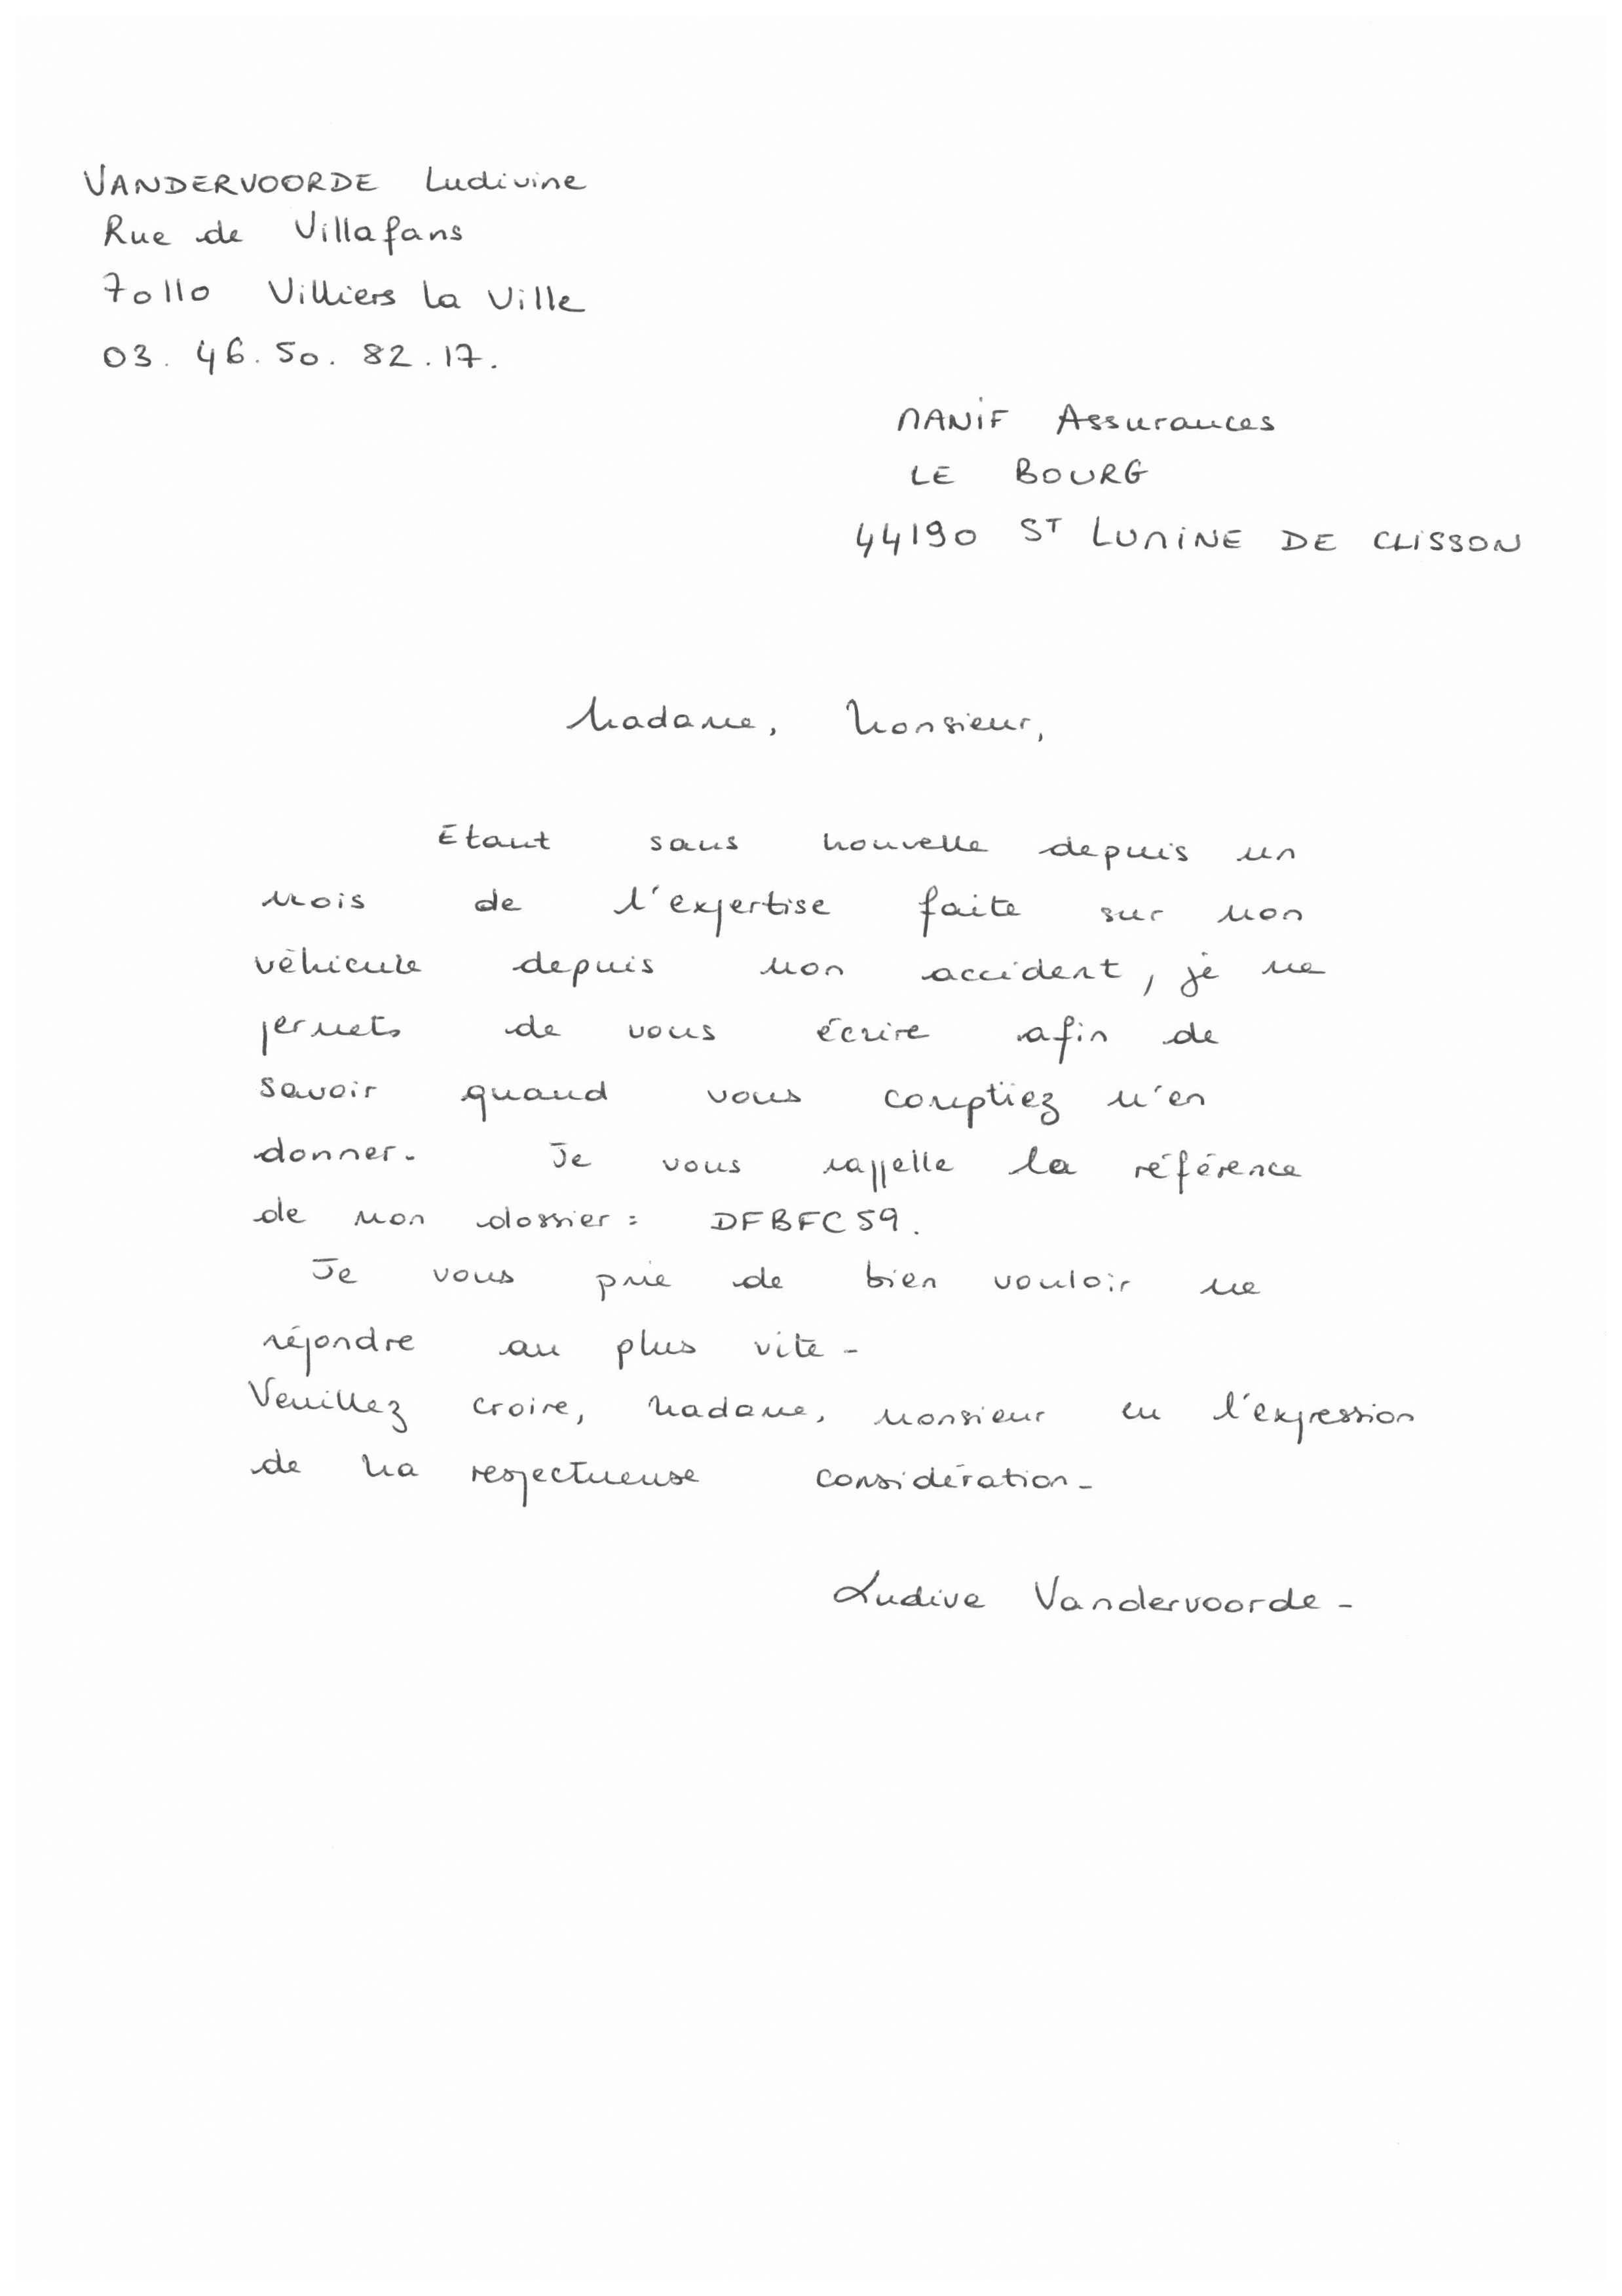 VANDERVOORDE Ludivine
Rue de Villafans
70110 Villiers la Ville
03. 46. 50. 82. 17.
MANiF Assurances
LE BOURG
44190 ST LUMiNE DE CLiSSON
Madame, Monsieur,
Etant sans nouvelle depuis un
mois de l'expertise faite sur mon
véhicule depuis mon accident, je me
permets de vous écrire afin de
savoir quand vous comptiez m'en
donner. Je vous rappelle la référence
de mon dossier : DFBFC59.
Je vous prie de bien vouloir me
répondre au plus vite.
Veuillez croire, Madame, Monsieur en l'expression
de ma respectueuse considération.
Ludive Vandervoorde.